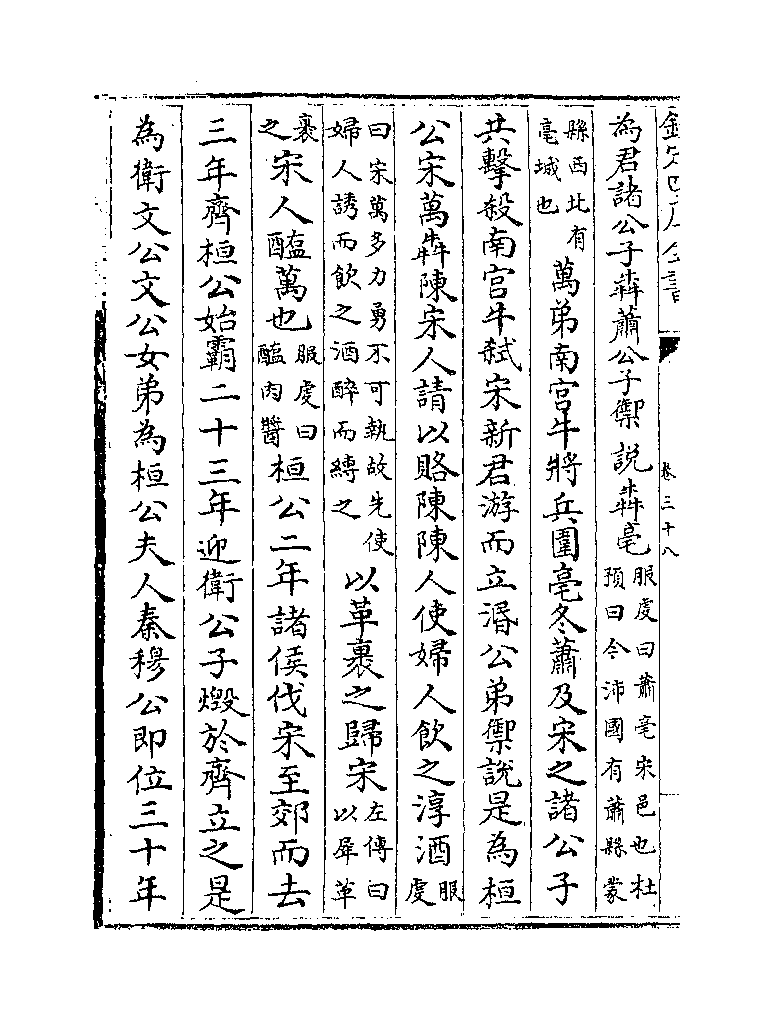 欽定四庫全書
卷三十八
為君諸公子犇蕭公子禦說犇亳服䖍曰蕭亳宋邑也杜預曰今沛國有蕭縣蒙
縣西北有亳城也萬弟南宫牛將兵圍亳冬蕭及宋之諸公子
共擊殺南宫牛弒宋新君游而立湣公弟禦說是為桓
公宋萬犇陳宋人請以賂陳陳人使婦人飲之淳酒服䖍
曰宋萬多力勇不可執故先使婦人誘而飲之酒醉而縛之以革裹之歸宋左傳曰以犀革
裹之宋人醢萬也服䖍曰醢肉醬桓公二年諸侯伐宋至郊而去
三年齊桓公始霸二十三年迎衛公子燬於齊立之是
為衛文公文公女弟為桓公夫人秦穆公即位三十年